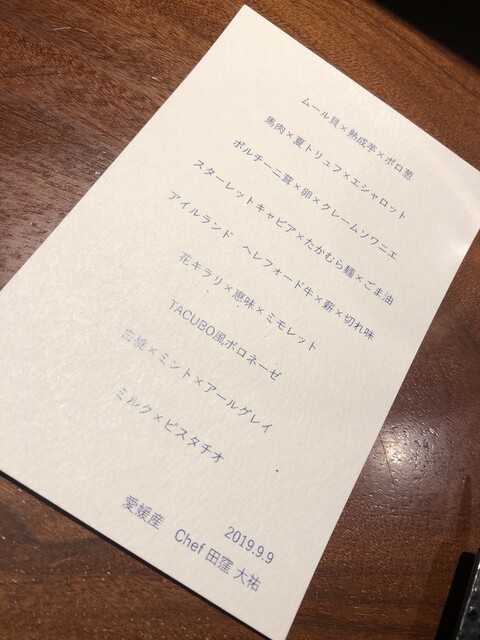 ムール貝×熟成芋×ポロ葱
馬肉×夏トリュフ×エシャロット
ポルチーニ茸×卵×クレームソワニエ
スターレットキャビア×たかむら麺×ごま油
アイルランド ヘレフォード牛×薪×切れ味
花キラリ×恵味×ミモレット
TACUBO風ボロネーゼ
×ミント×アールグレイ
ミルク×ピスタチオ
2019.9.9
愛媛産 Chef 田窪 大祐